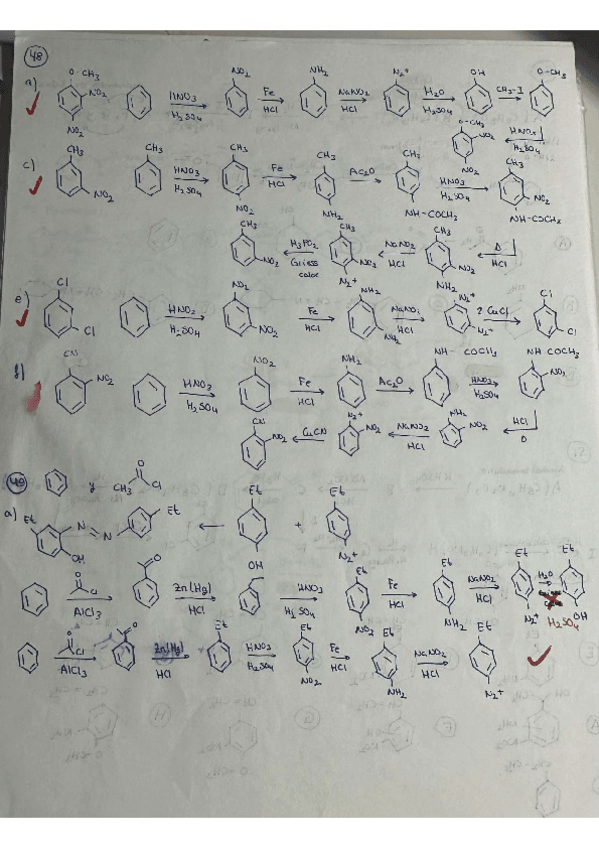 48
a) O-CH3 NO2 NO2 HNO3 H2SO4 NO2 Fe HCl NH2 NaNO2 HCl N2+ H2O H2SO4 OH CH3-I O-CH3
O-CH3 NO2 NO2 HNO3 H2SO4
c) CH3 NO2 CH3 HNO3 H2SO4 CH3 NO2 Fe HCl CH3 NH2 Ac2O CH3 NH-COCH3 HNO3 H2SO4 CH3 NO2 NH-COCH3
CH3 NO2 H3PO2 CH3 NO2 N2+ NaNO2 HCl CH3 NO2 NH2 Δ HCl
e) Cl Cl HNO3 H2SO4 NO2 NO2 Fe HCl NH2 NH2 NaNO2 HCl N2+ N2+ 2 CuCl Cl Cl
f) CN NO2 HNO3 H2SO4 NO2 Fe HCl NH2 Ac2O NH-COCH3 HNO3 H2SO4 NH COCH3 NO2
CN NO2 CuCN N2+ NO2 NaNO2 HCl NH2 NO2 HCl Δ
49 y CH3 O Cl
a) Et N=N Et OH Et OH + Et N2+
O Cl AlCl3 O Zn(Hg) HCl HNO3 H2SO4 Et NO2 Fe HCl Et NH2 NaNO2 HCl Et N2+ H2O H2SO4 Et OH
O Cl AlCl3 O Zn(Hg) HCl Et HNO3 H2SO4 Et NO2 Fe HCl Et NH2 NaNO2 HCl Et N2+